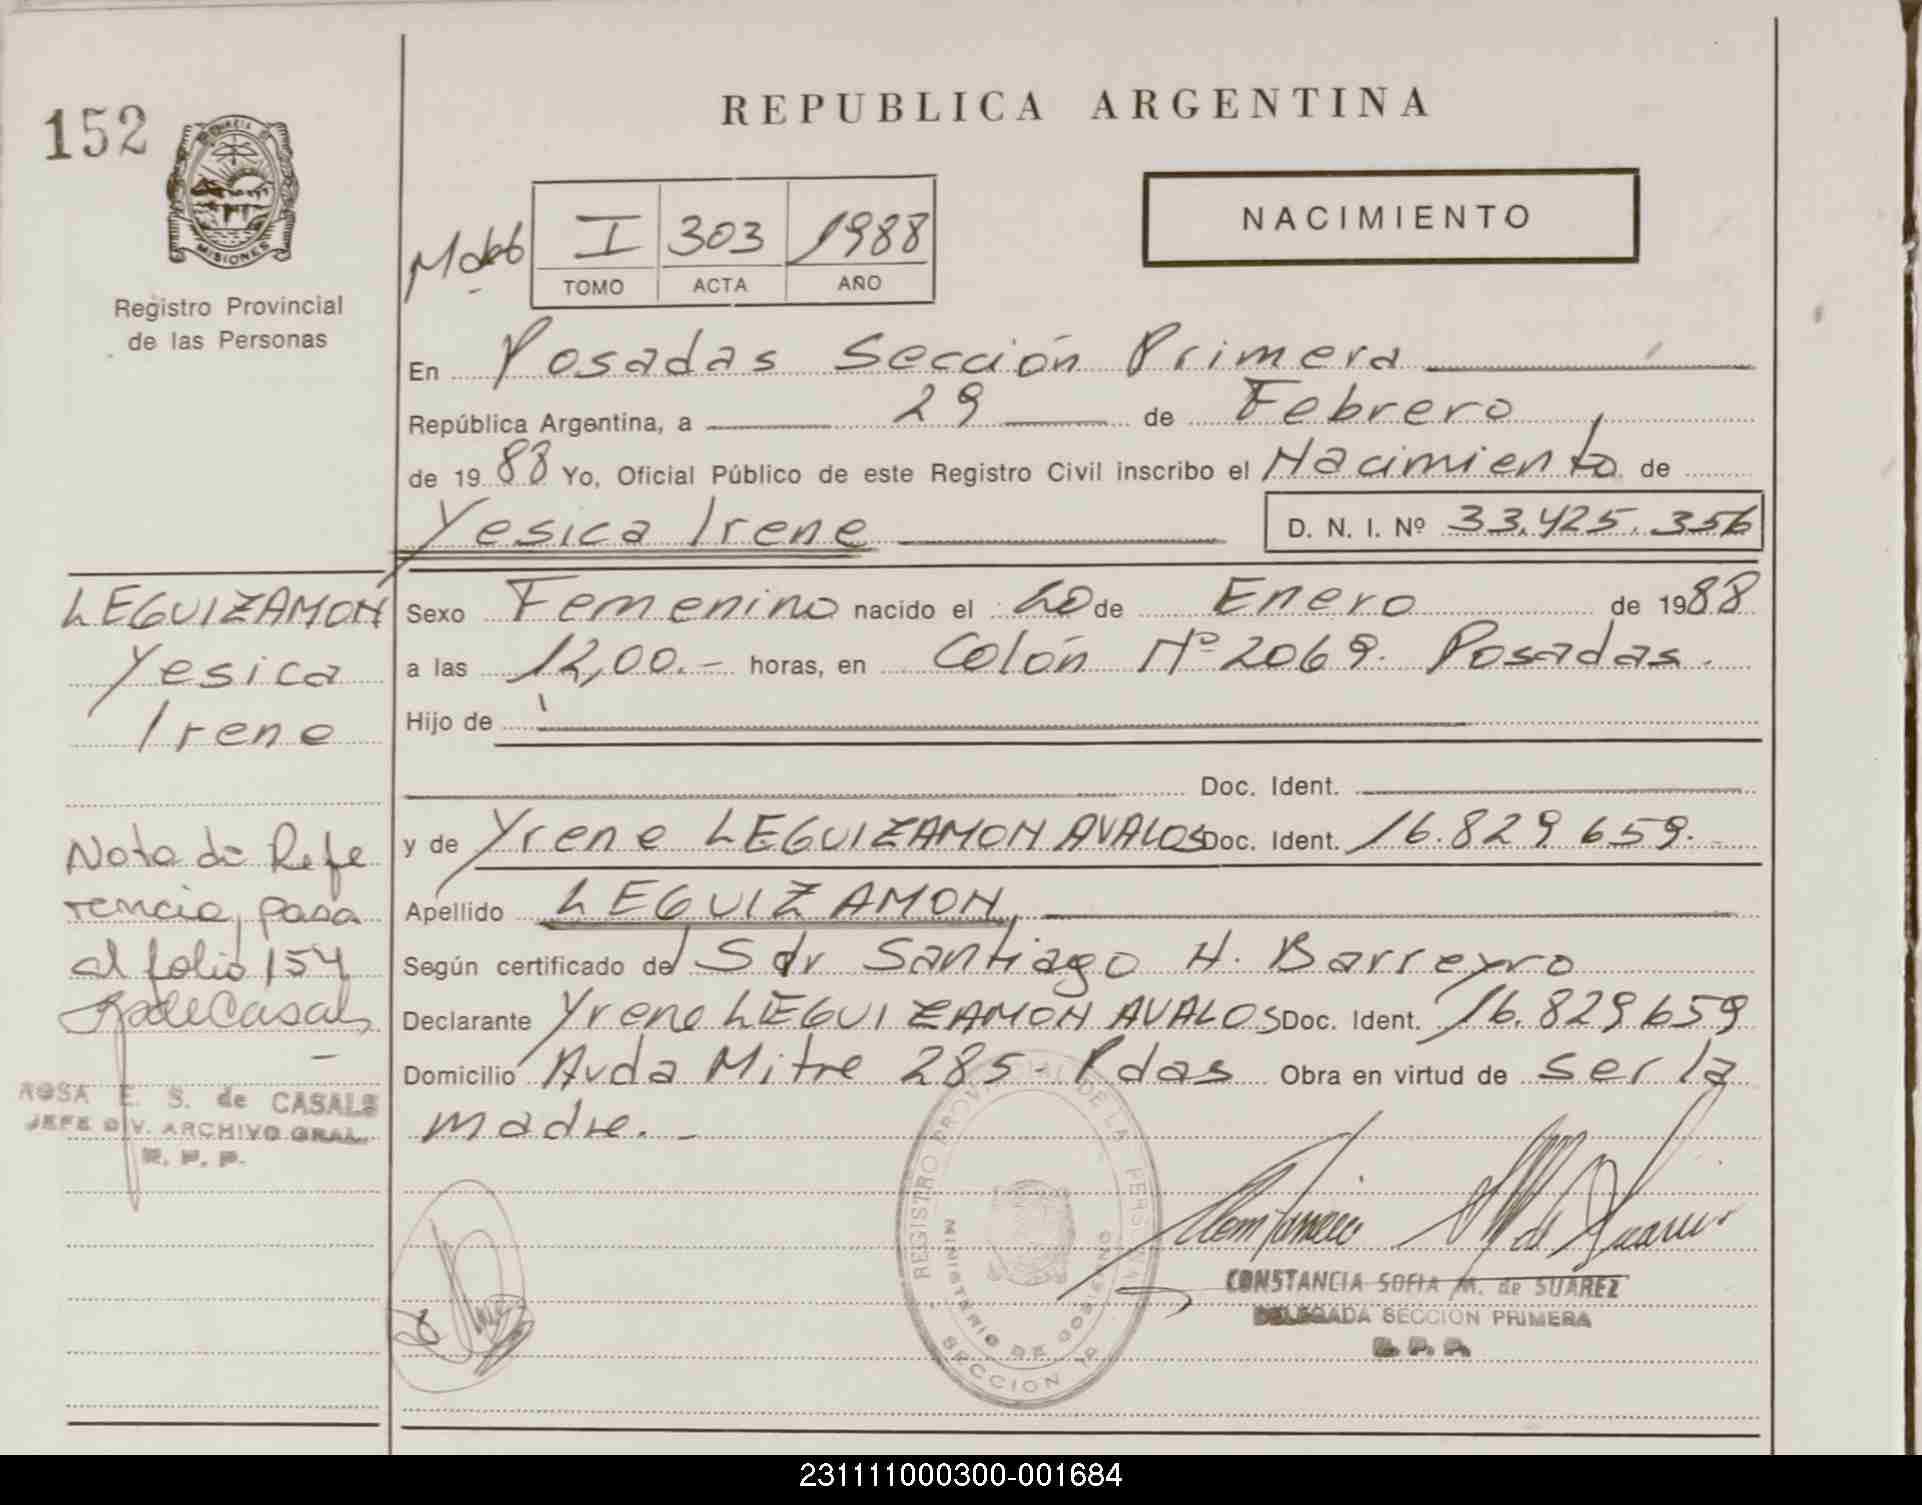 152
PROVINCIA DE
MISIONES
Registro Provincial
de las Personas
REPUBLICA ARGENTINA
NACIMIENTO
I 303 1988
TOMO ACTA AÑO
En Posadas Sección Primera
República Argentina, a 29 de Febrero
de 1988 Yo, Oficial Público de este Registro Civil inscribo el Nacimiento de
Yesica Irene D. N. I. Nº 33.425.356
LEGUIZAMON
Yesica
Irene
Sexo Femenino nacido el 20 de Enero de 1988
a las 12,00.- horas, en Colón Nº 2069. Posadas.
Hijo de
Doc. Ident.
y de Yrene LEGUIZAMON AVALOS Doc. Ident. 16.829.659.
Apellido LEGUIZAMON,
Según certificado del Sdr Santiago H. Barreyro
Declarante Yrene LEGUIZAMON AVALOS Doc. Ident. 16.829659
Domicilio Avda Mitre 285 - Pdas Obra en virtud de ser la
madre. -
Nota de Refe
rencia, pasa
al folio 154
ROSA E. S. de CASALS
JEFE DIV. ARCHIVO GRAL.
R. P. P.
REGISTRO PROVINCIAL DE LAS PERSONAS
MINISTERIO DE GOBIERNO
SECCION 1ª
CONSTANCIA SOFIA M. de SUAREZ
DELEGADA SECCION PRIMERA
R. P. P.
231111000300-001684